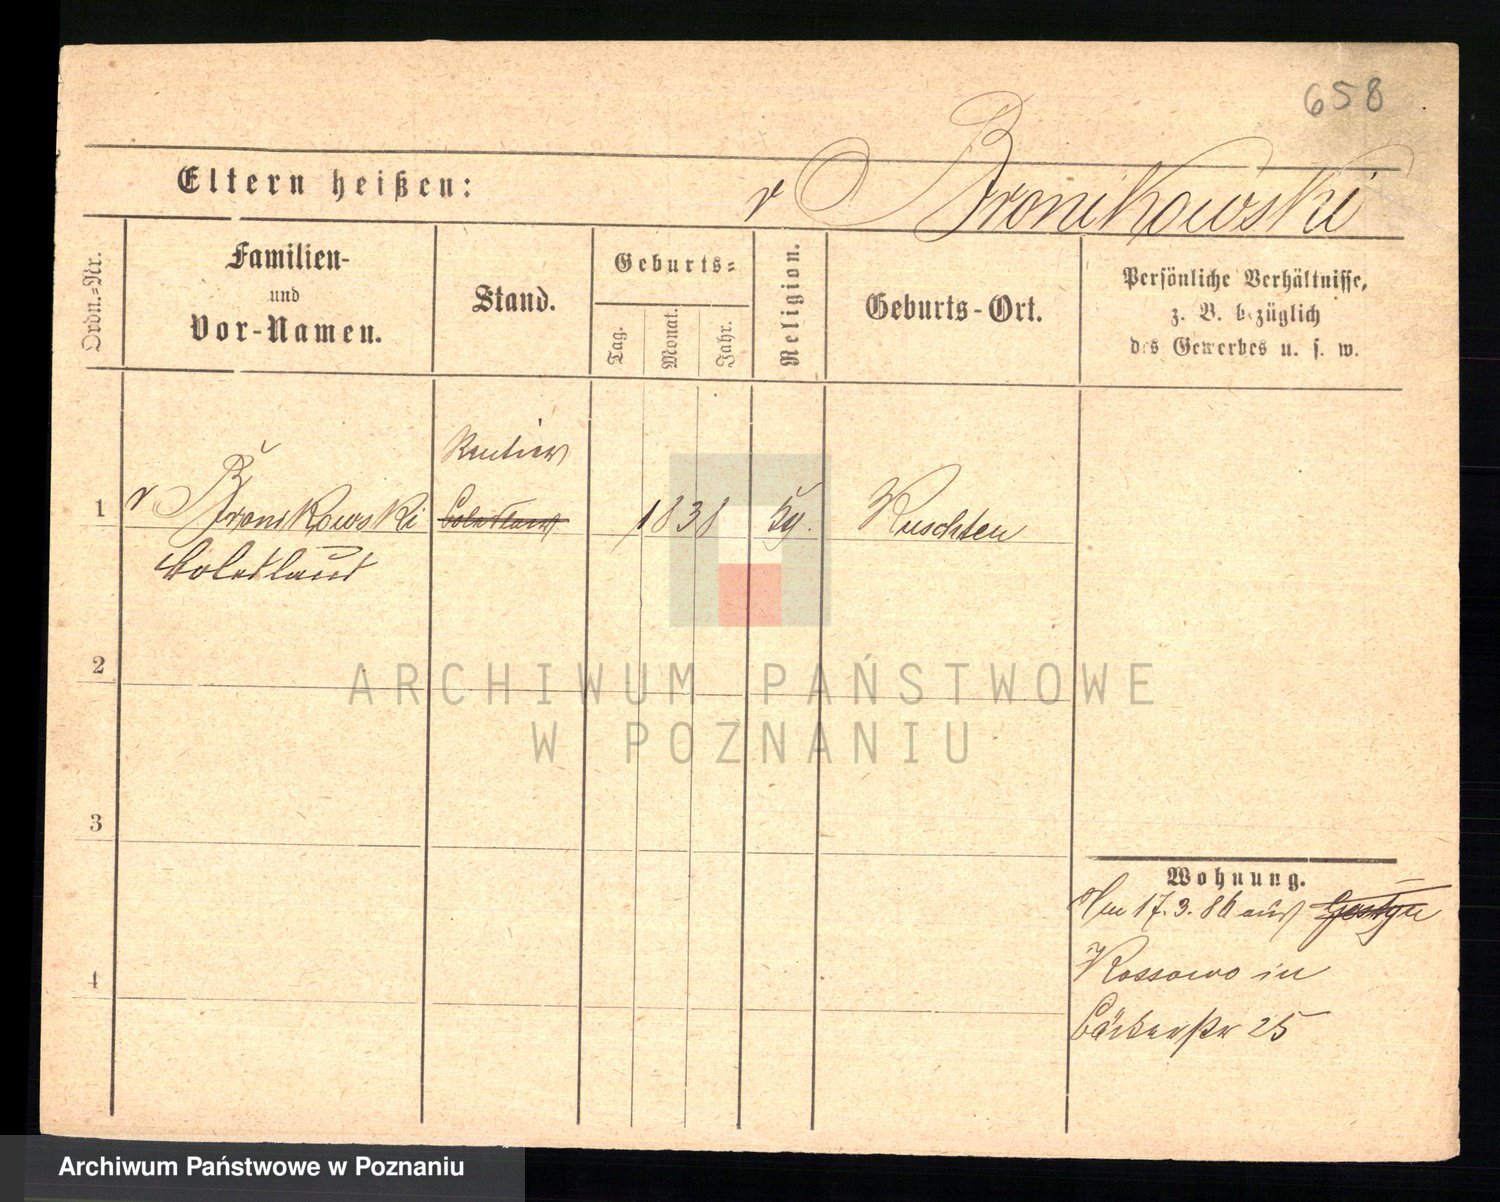 658
Eltern heißen:
v Bronikowski
Ordn.=Nr.
Familien-
und
Vor-Namen.
Stand.
Geburts=
Tag.
Monat.
Jahr.
Religion.
Geburts-Ort.
Persönliche Verhältnisse,
z. B. bezüglich
des Gewerbes u. s. w.
Rentier
1
v Bronikowski
1838
Kuschten
2
ARCHIWUM PAŃSTWOWE
W POZNANIU
3
4
Wohnung.
Am 17.3.86 aus Gostyn
Kossowo in
Bäckerstr 25
Archiwum Państwowe w Poznaniu